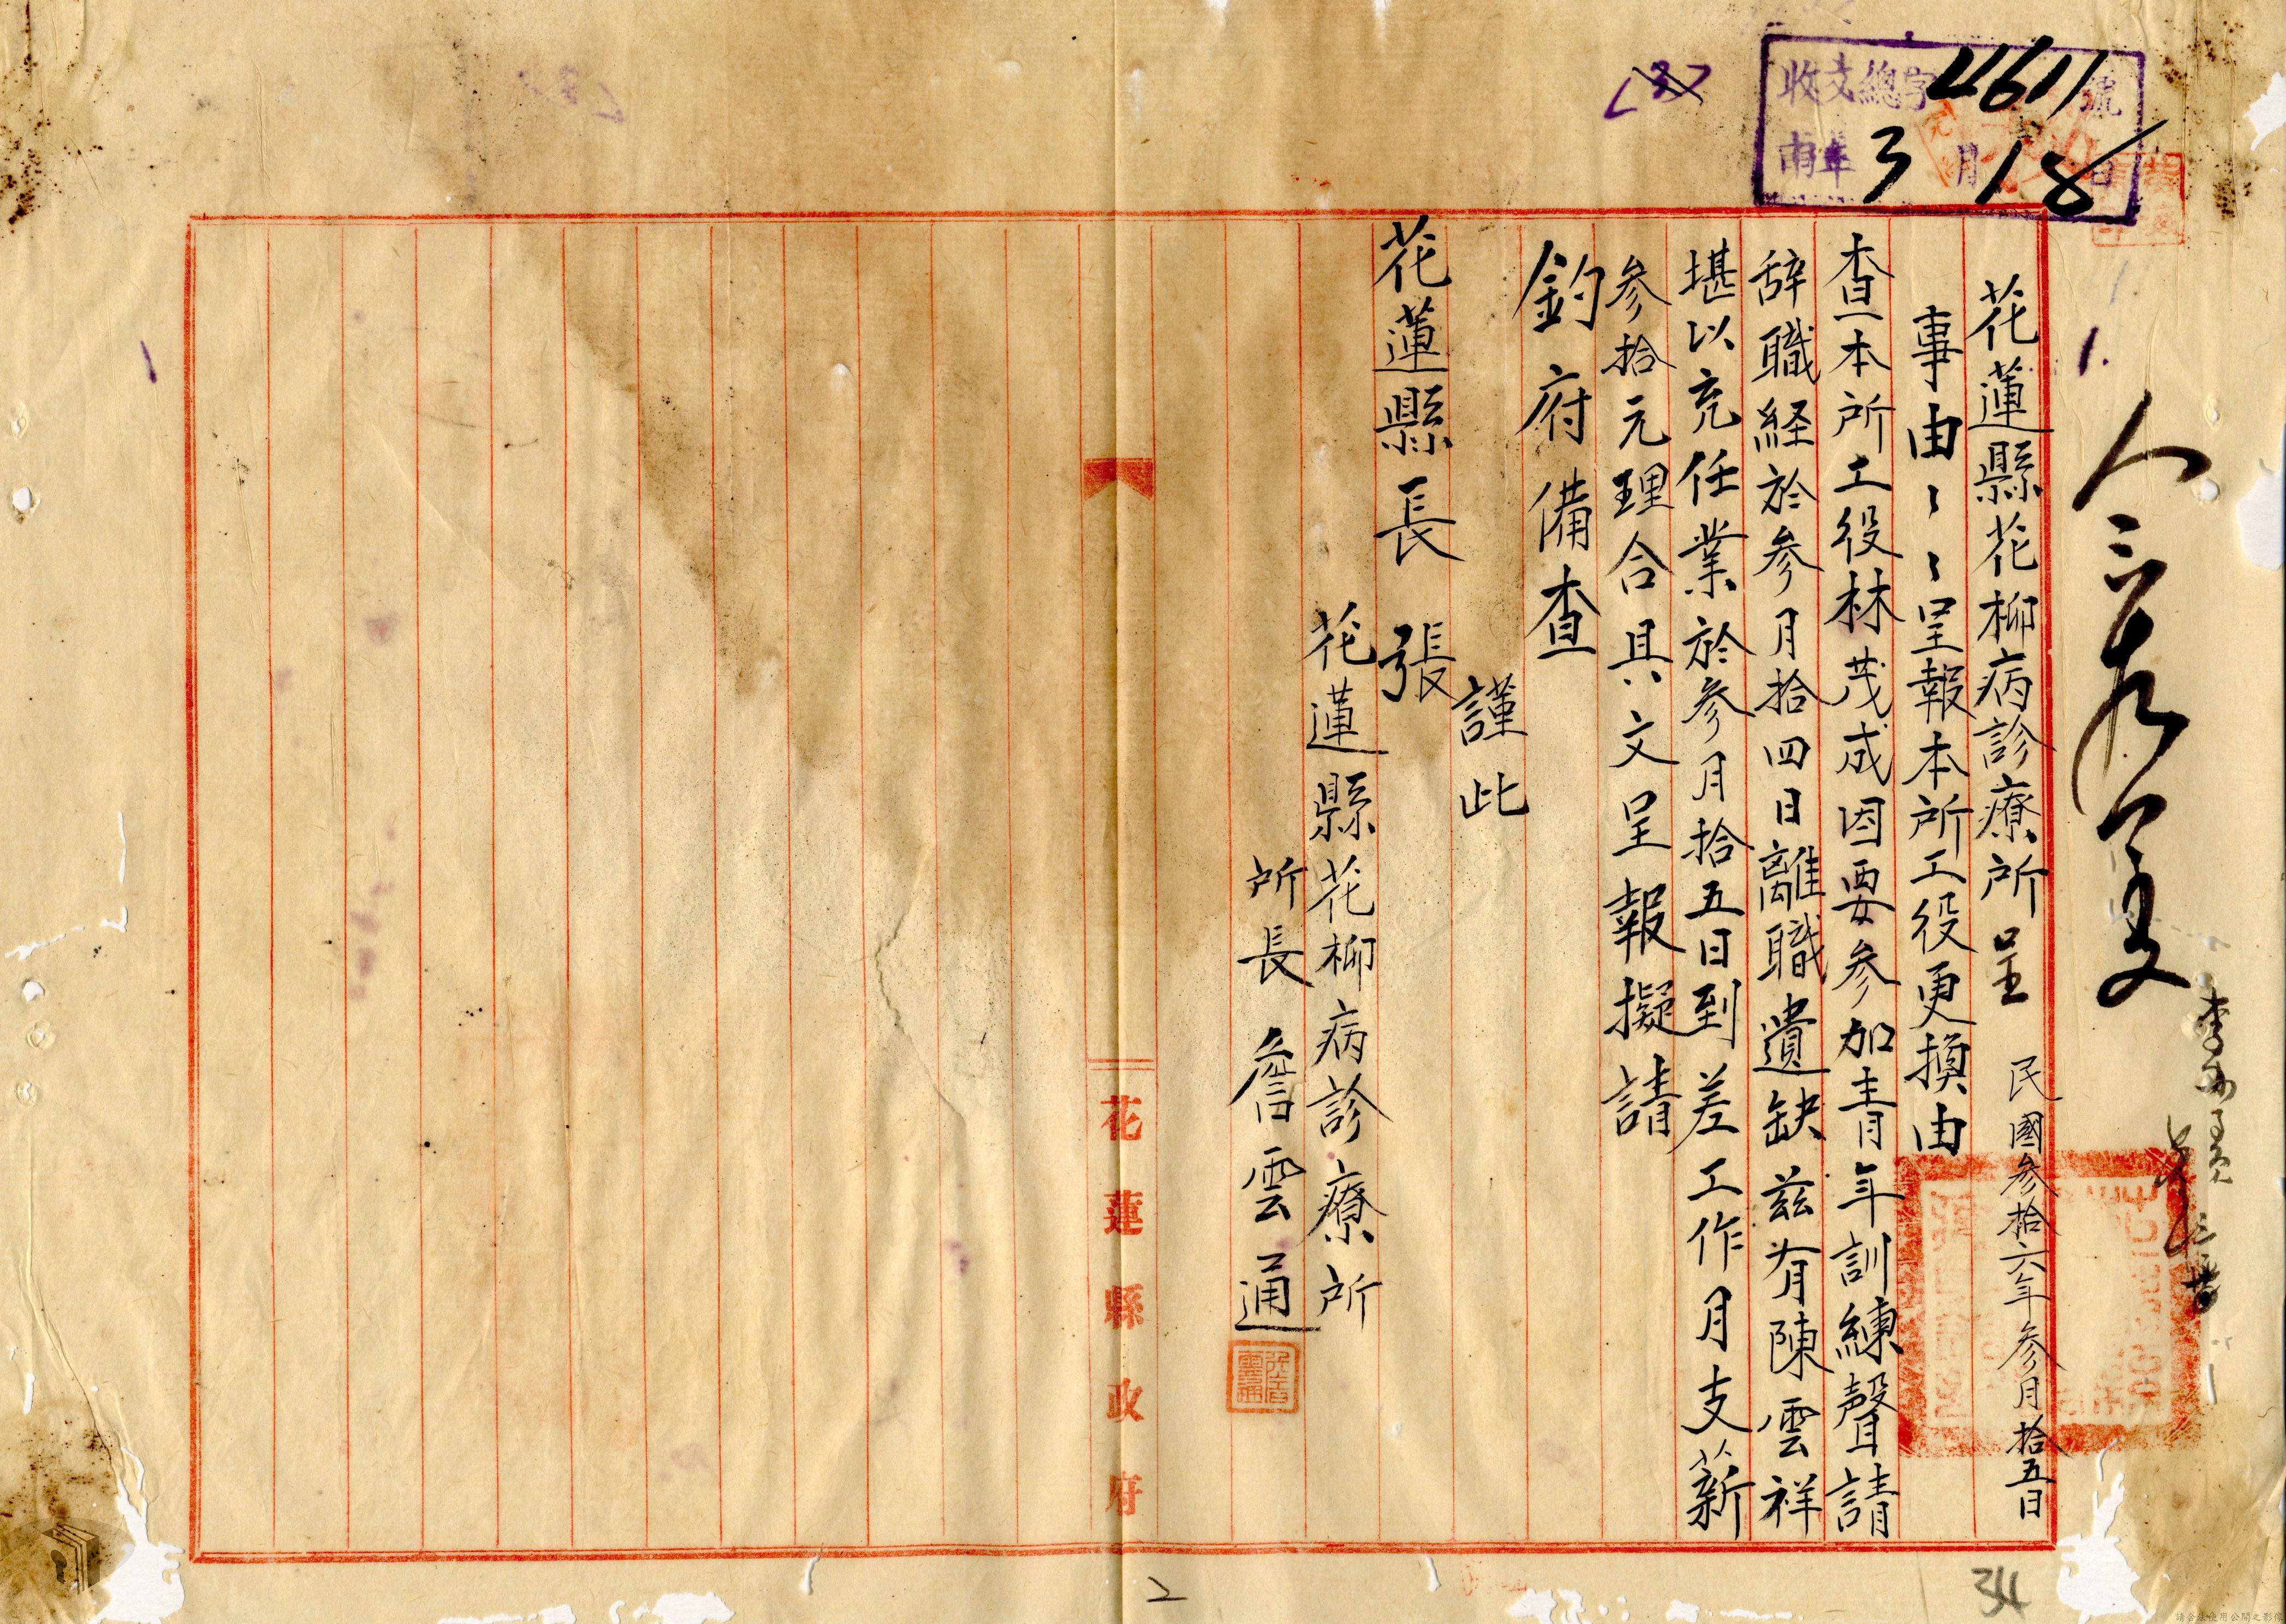 收文總字4611號
3月18日
花蓮縣花柳病診療所呈 民國參拾六年參月拾五日
事由：：呈報本所工役更換由
查本所工役林茂成因要參加青年訓練聲請
辞職経於參月拾四日離職遺缺茲有陳雲祥
堪以充任業於參月拾五日到差工作月支薪
參拾元理合具文呈報擬請
鈞府備查
謹此
花蓮縣長 張
花蓮縣花柳病診療所
所長 詹雲通
花蓮縣政府
2
34